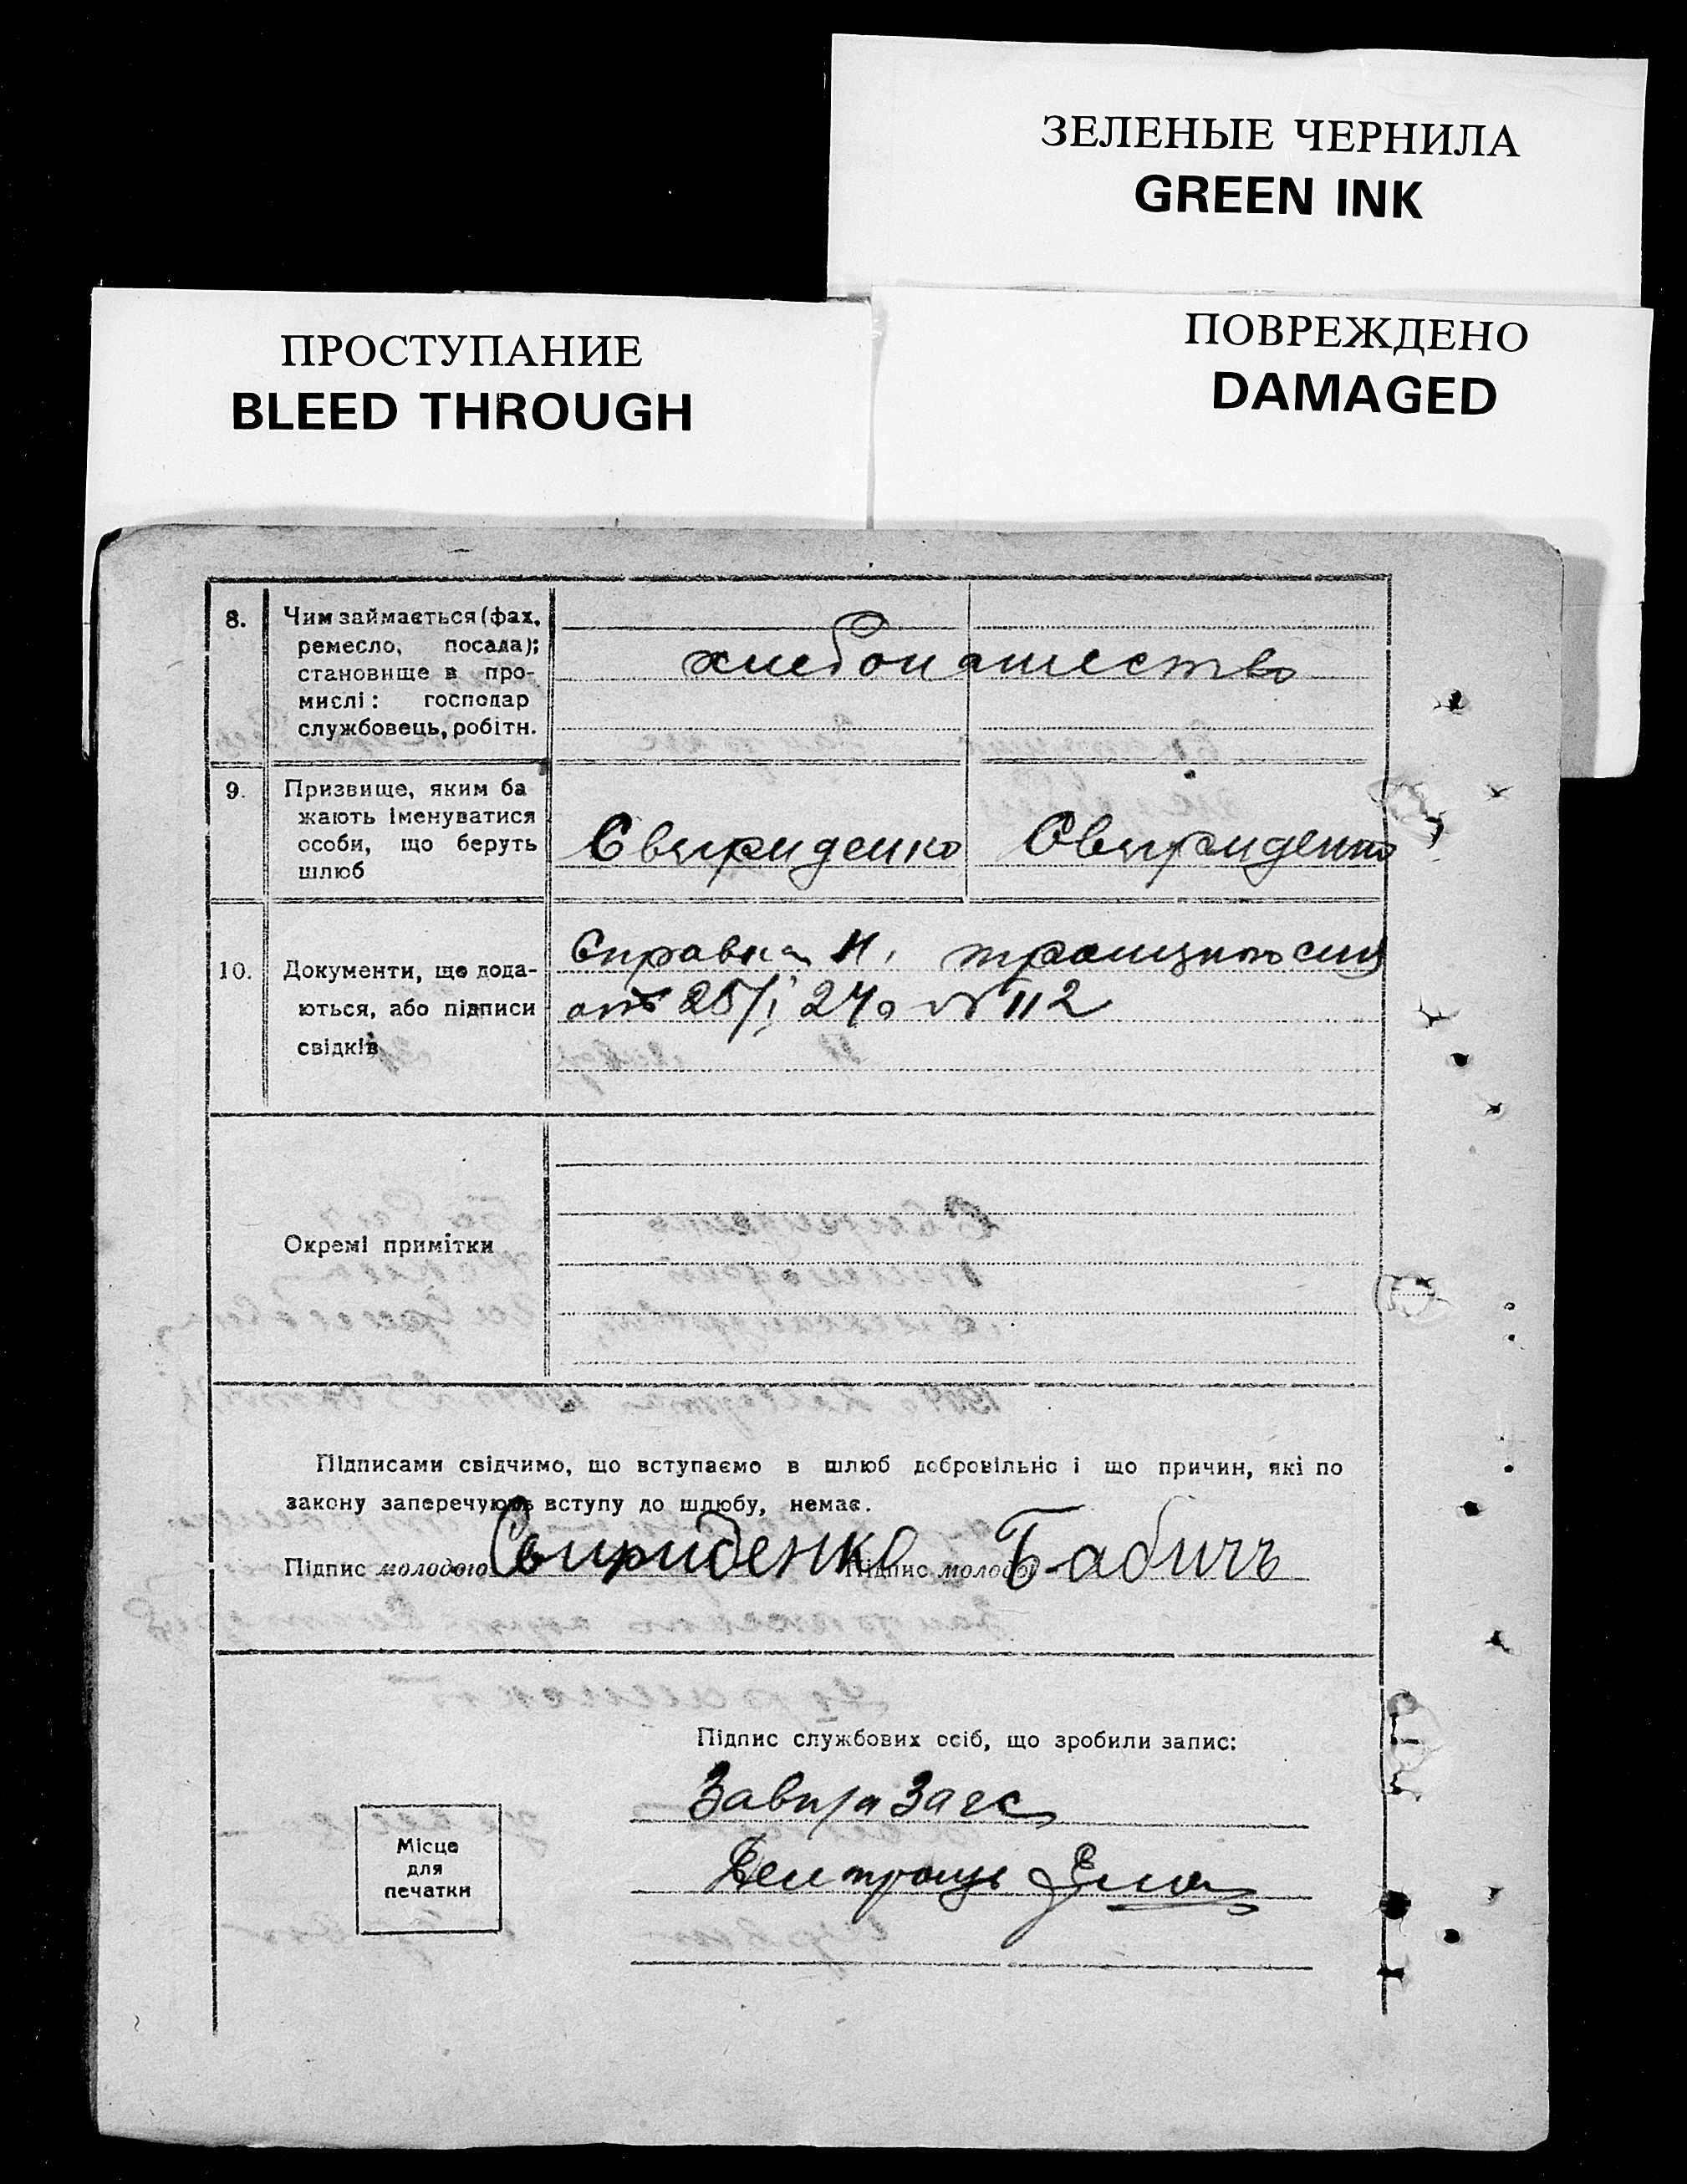 ЗЕЛЕНЫЕ ЧЕРНИЛА
GREEN INK
ПРОСТУПАНИЕ
BLEED THROUGH
ПОВРЕЖДЕНО
DAMAGED
8. Чим займається (фах,
ремесло, посада);
становище в про-
мислі: господар
службовець, робітн.
хлебопашество
9. Призвище, яким ба
жають іменуватися
особи, що беруть
шлюб
Свириденко Свириденко
10. Документи, що дода-
ються, або підписи
свідків
Справка Н. троицкого
от 25/I 24 г № 112
Окремі примітки
Підписами свідчимо, що вступаємо в шлюб добровільно і що причин, які по
закону заперечують вступу до шлюбу, немає.
Підпис молодого Свириденко Підпис молодої Бабичъ
Підпис службових осіб, що зробили запис:
Загс
Місце
для
печатки